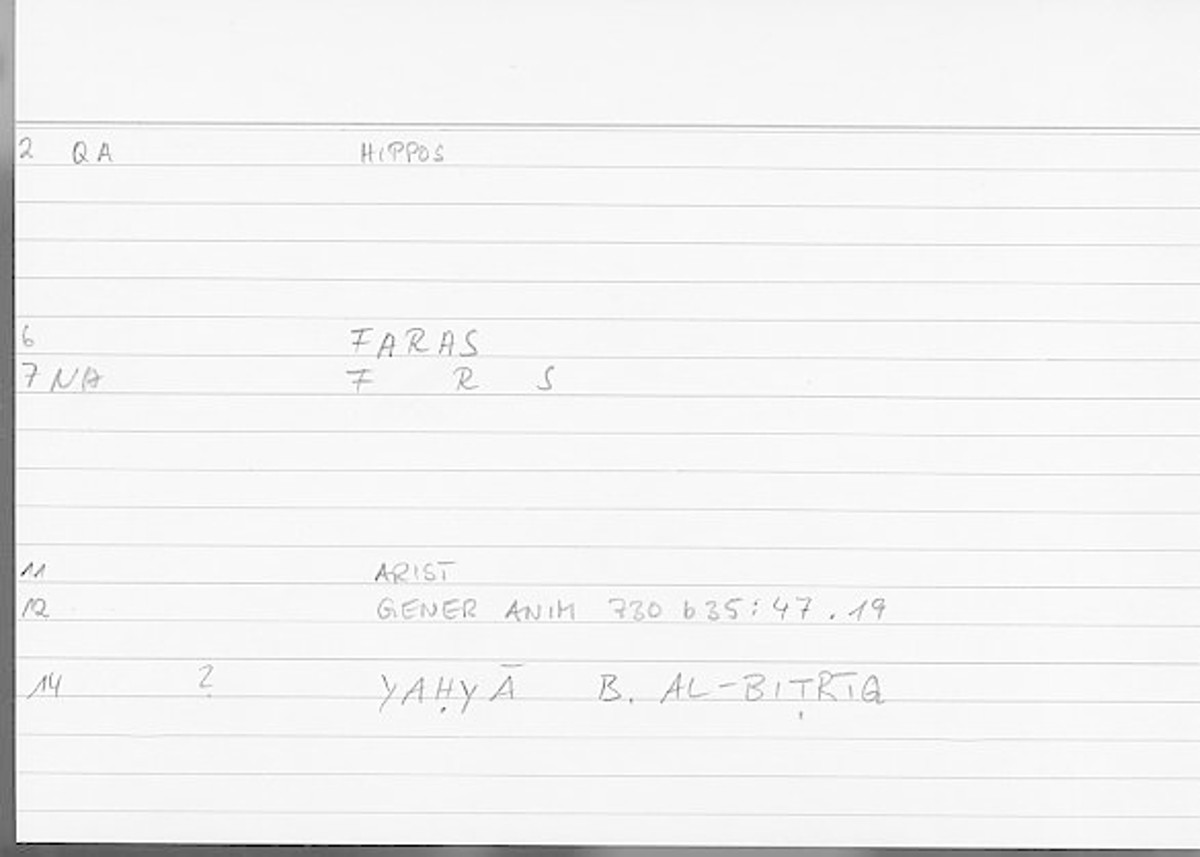 2 QA HIPPOS
6 FARAS
7 NA F R S
11 ARIST
12 GENER ANIM 730 b35:47.19
14 ? YAḤYĀ B. AL-BIṬRĪQ